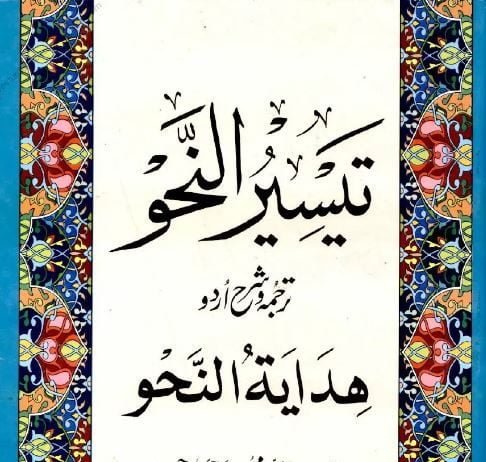 تَيسِيرُ النَّحو
ترجمہ و شرح اُردو
هِدَايَةُ النَّحو